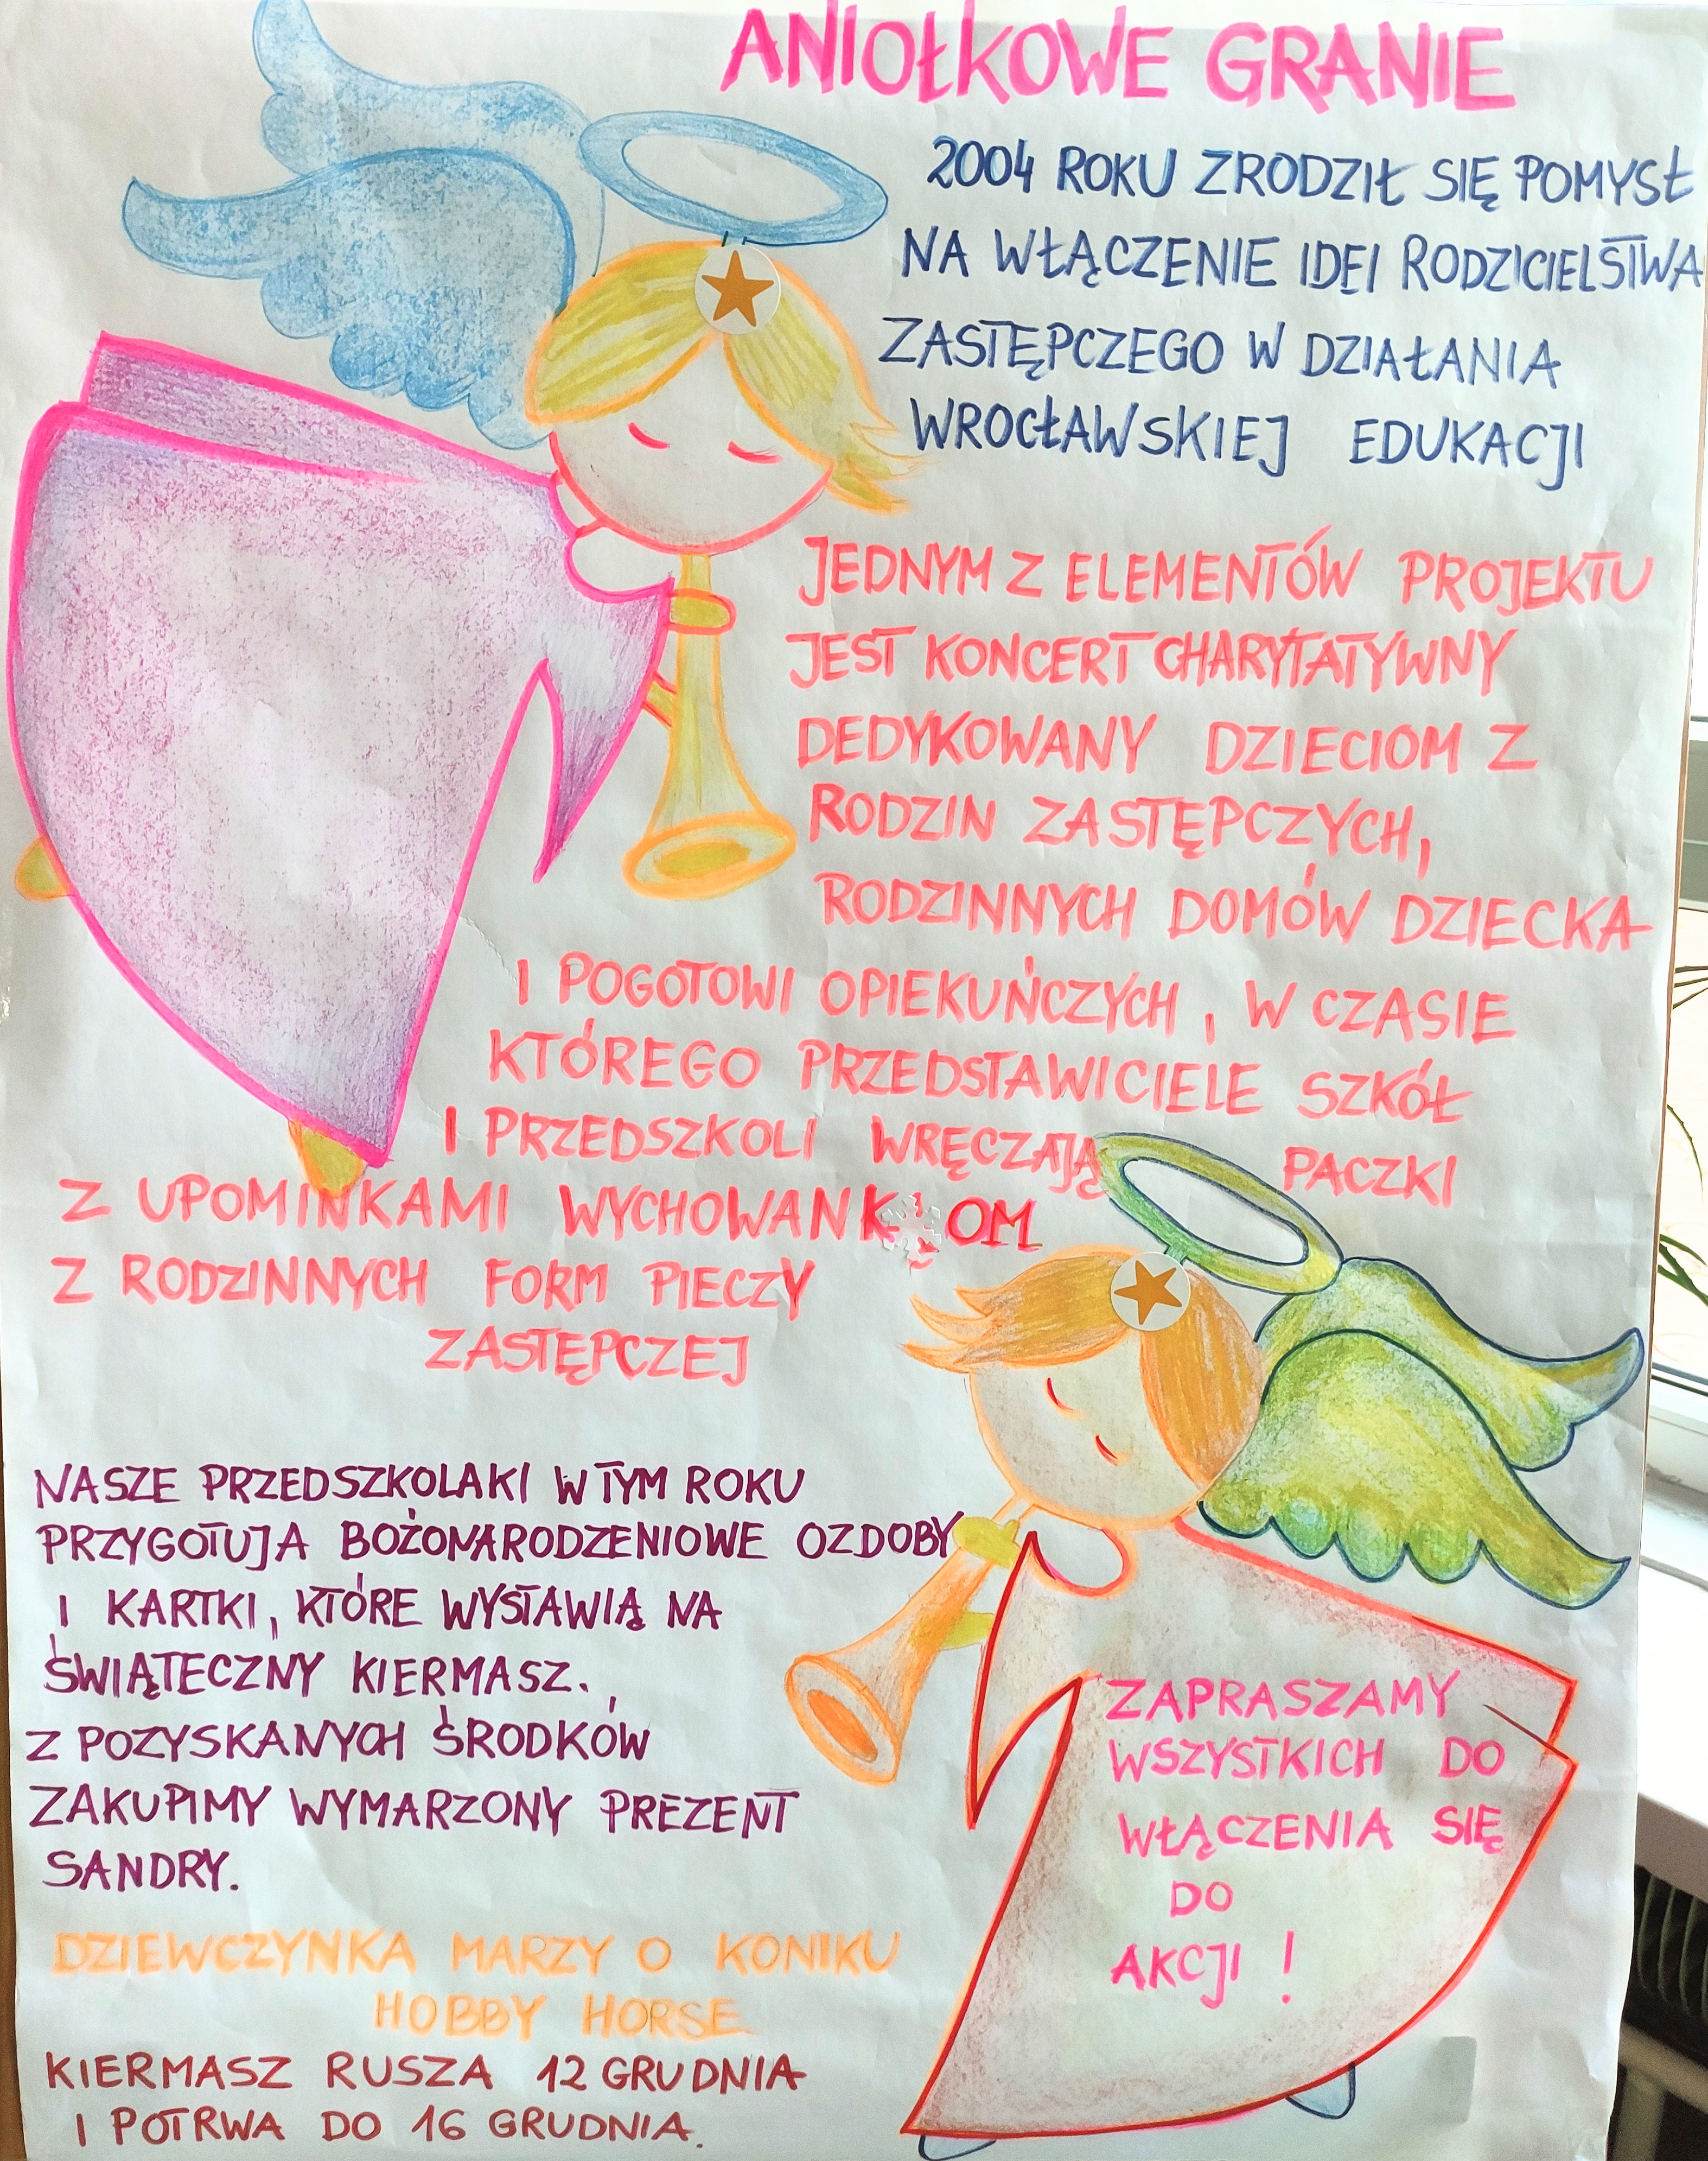 ANIOŁKOWE GRANIE
2004 ROKU ZRODZIŁ SIĘ POMYSŁ
NA WŁĄCZENIE IDEI RODZICIELSTWA
ZASTĘPCZEGO W DZIAŁANIA
WROCŁAWSKIEJ EDUKACJI
JEDNYM Z ELEMENTÓW PROJEKTU
JEST KONCERT CHARYTATYWNY
DEDYKOWANY DZIECIOM Z
RODZIN ZASTĘPCZYCH,
RODZINNYCH DOMÓW DZIECKA
I POGOTOWI OPIEKUŃCZYCH, W CZASIE
KTÓREGO PRZEDSTAWICIELE SZKÓŁ
I PRZEDSZKOLI WRĘCZAJĄ PACZKI
Z UPOMINKAMI WYCHOWANKOM
Z RODZINNYCH FORM PIECZY
ZASTĘPCZEJ
NASZE PRZEDSZKOLAKI W TYM ROKU
PRZYGOTUJA BOŻONARODZENIOWE OZDOBY
I KARTKI, KTÓRE WYSTAWIĄ NA
ŚWIĄTECZNY KIERMASZ.
Z POZYSKANYCH ŚRODKÓW
ZAKUPIMY WYMARZONY PREZENT
SANDRY.
DZIEWCZYNKA MARZY O KONIKU
HOBBY HORSE
KIERMASZ RUSZA 12 GRUDNIA
I POTRWA DO 16 GRUDNIA.
ZAPRASZAMY
WSZYSTKICH DO
WŁĄCZENIA SIĘ
DO
AKCJI !